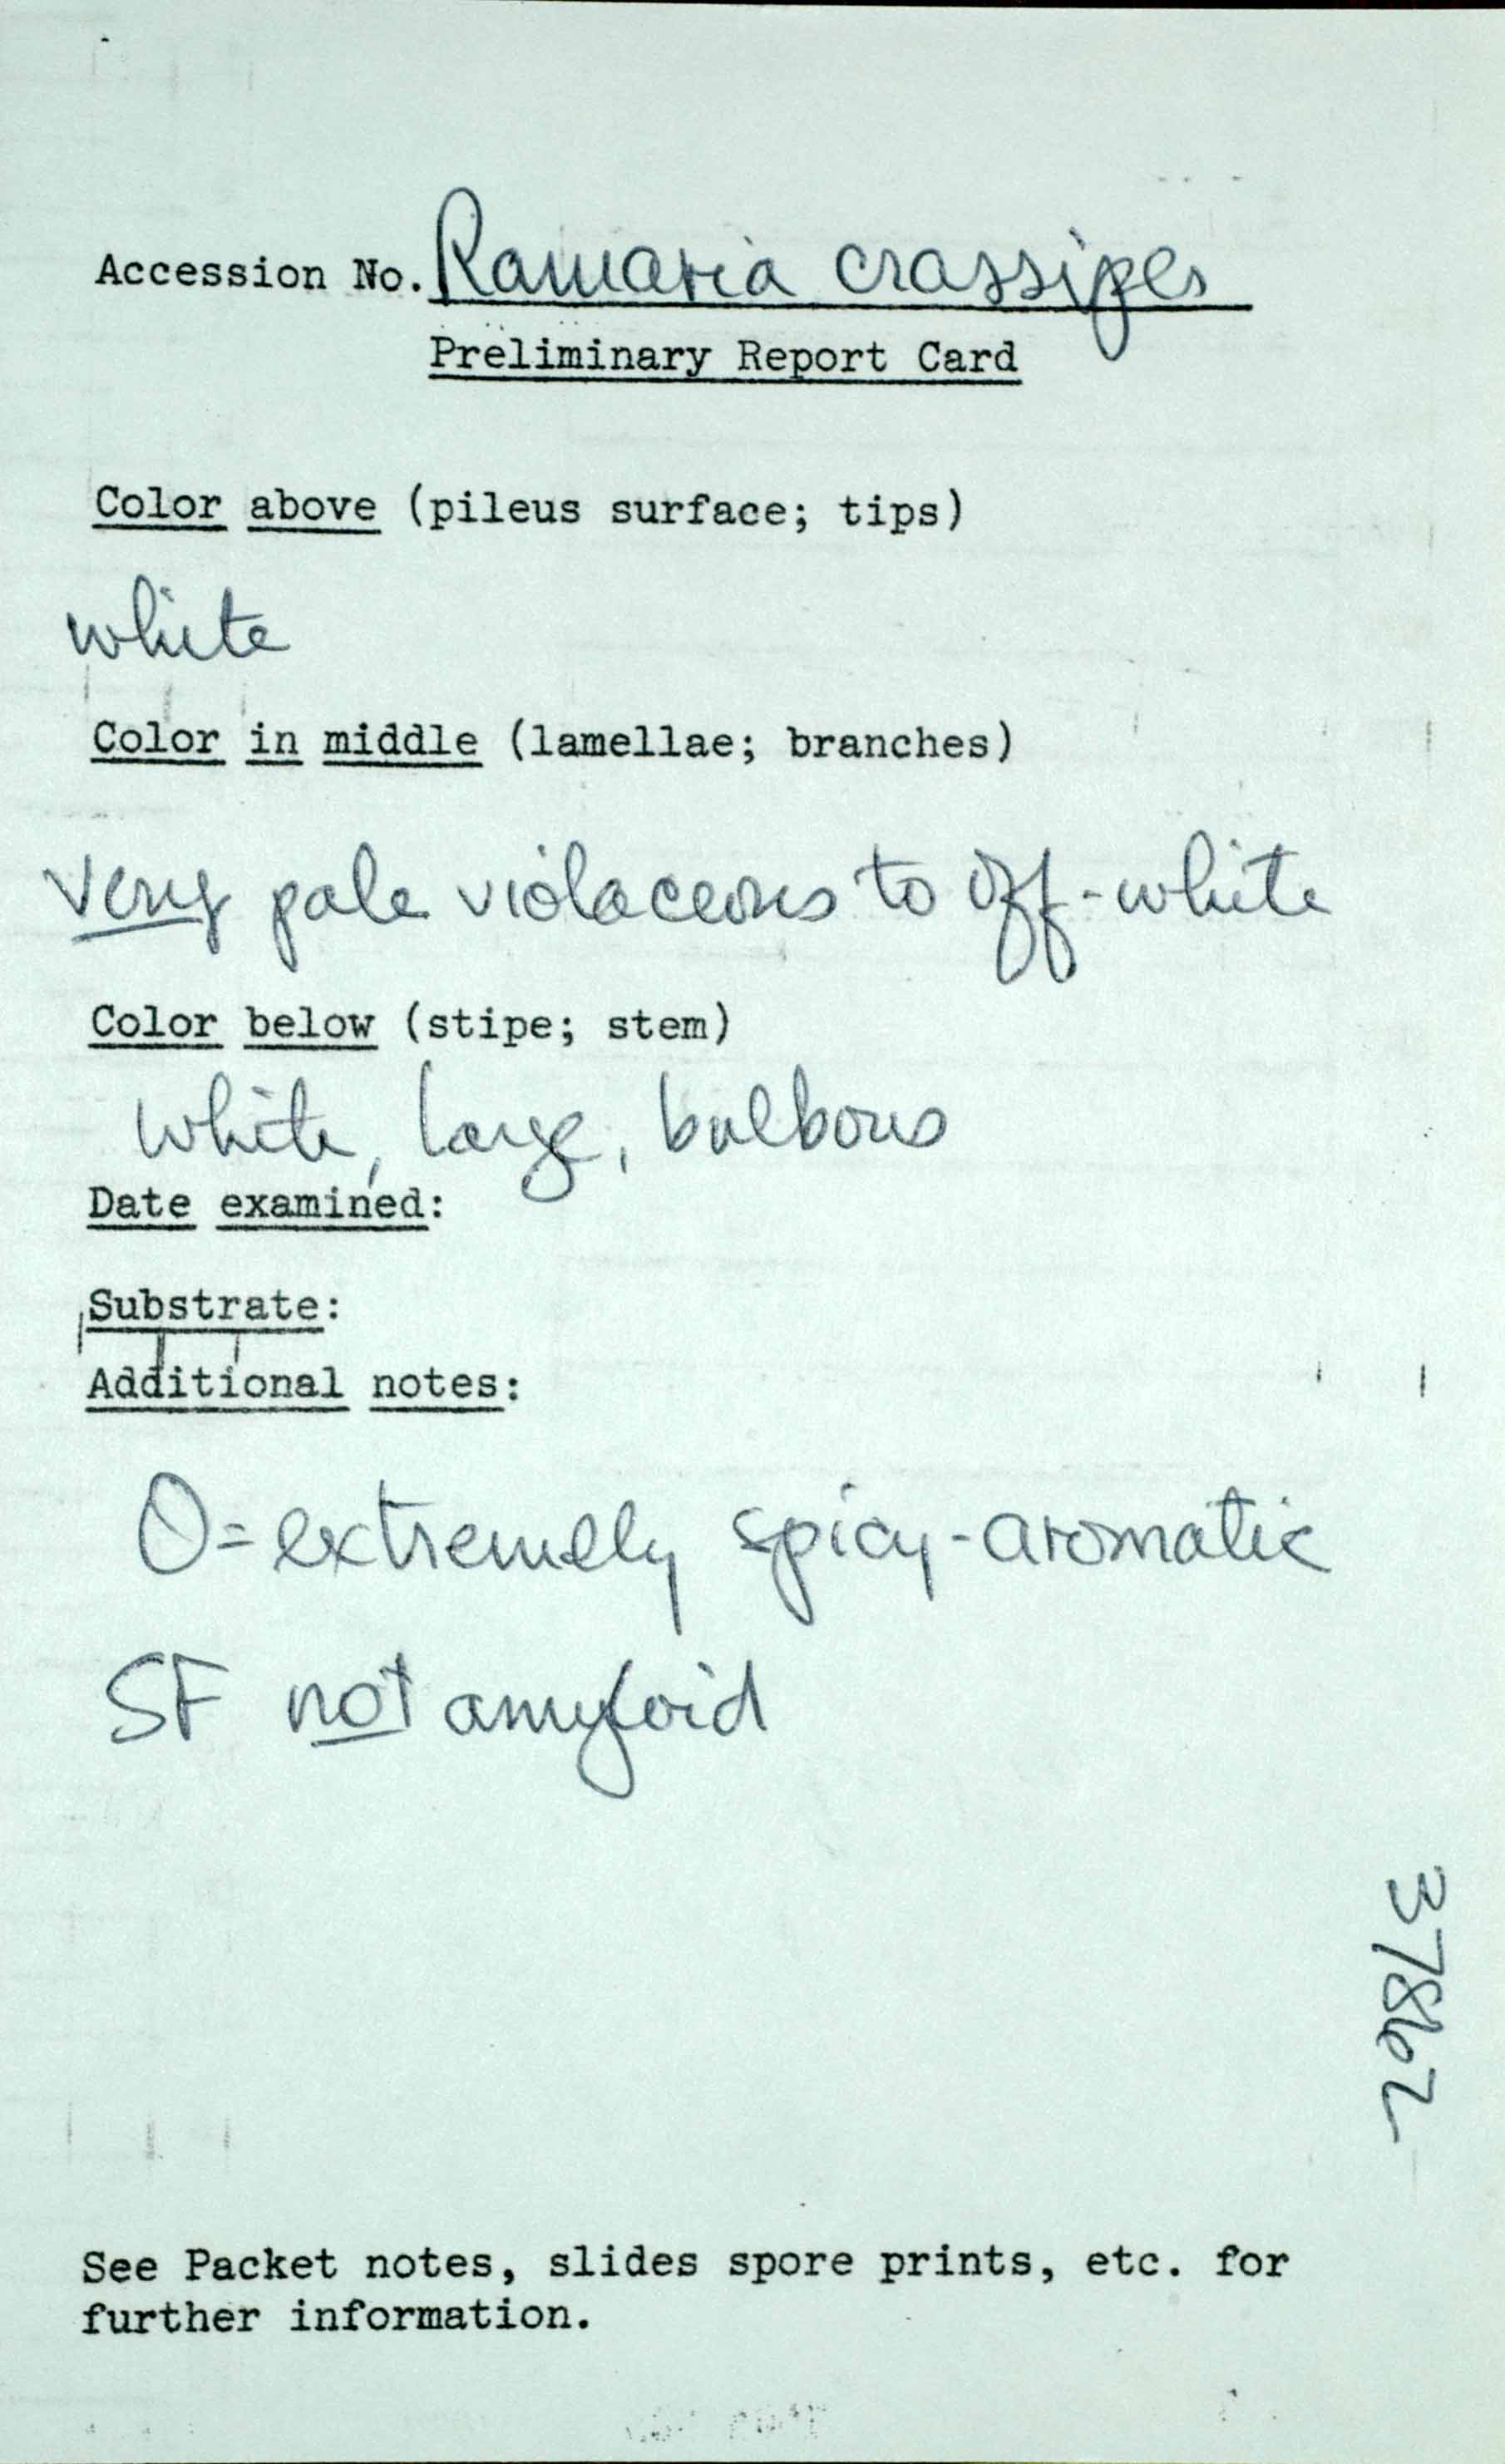 Accession No. Ramaria crassipes
Preliminary Report Card
Color above (pileus surface; tips)
white
Color in middle (lamellae; branches)
very pale violaceous to off-white
Color below (stipe; stem)
white, large, bulbous
Date examined:
Substrate:
Additional notes:
O = extremely spicy-aromatic
SF not amyloid
37862
See Packet notes, slides spore prints, etc. for
further information.